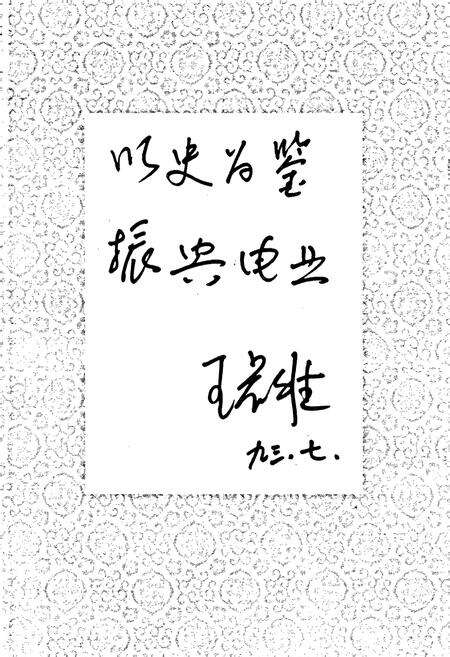 以史为鉴
振兴电业
九三.七.